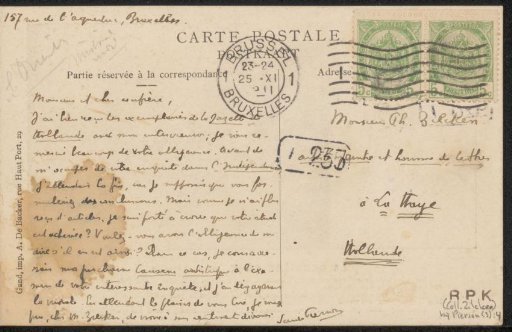 157 rue de l'aqueduc, Bruxelles.
CARTE POSTALE
PORTRAIT
Partie réservée à la correspondance
Adresse
BRUSSEL
23-24
25 XI
1
BRUXELLES
5
5
Monsieur et cher confrère,
J'ai bien reçu les exemplaires de la Gazette de
Hollande avec mon interview; je vous re-
mercie beaucoup de votre obligeance. Avant de
m'occuper de votre enquête dans l'Indépendance
j'attendais la fin, car je supposais que vous for-
muleriez des conclusions. Mais comme je n'ai plus
reçu d'articles, je suis porté à croire que votre étude
est achevée? Voulez-vous avoir l'obligeance de me
dire s'il en est ainsi? Dans ce cas, je consacre-
rais ma prochaine Causerie artistique à l'exa-
men de votre intéressante enquête, et j'en dégagerais
la morale. En attendant le plaisir de vous lire, je vous
prie, cher M. Zilcken, de croire à mes sentiments dévoués
Sander Pierron
Monsieur Ph. Zilcken
peintre et homme de lettres
à La Haye
Hollande
Gand, imp. A. De Backer, rue Haut Port, 29
R.P.K.
(coll. Zilcken)